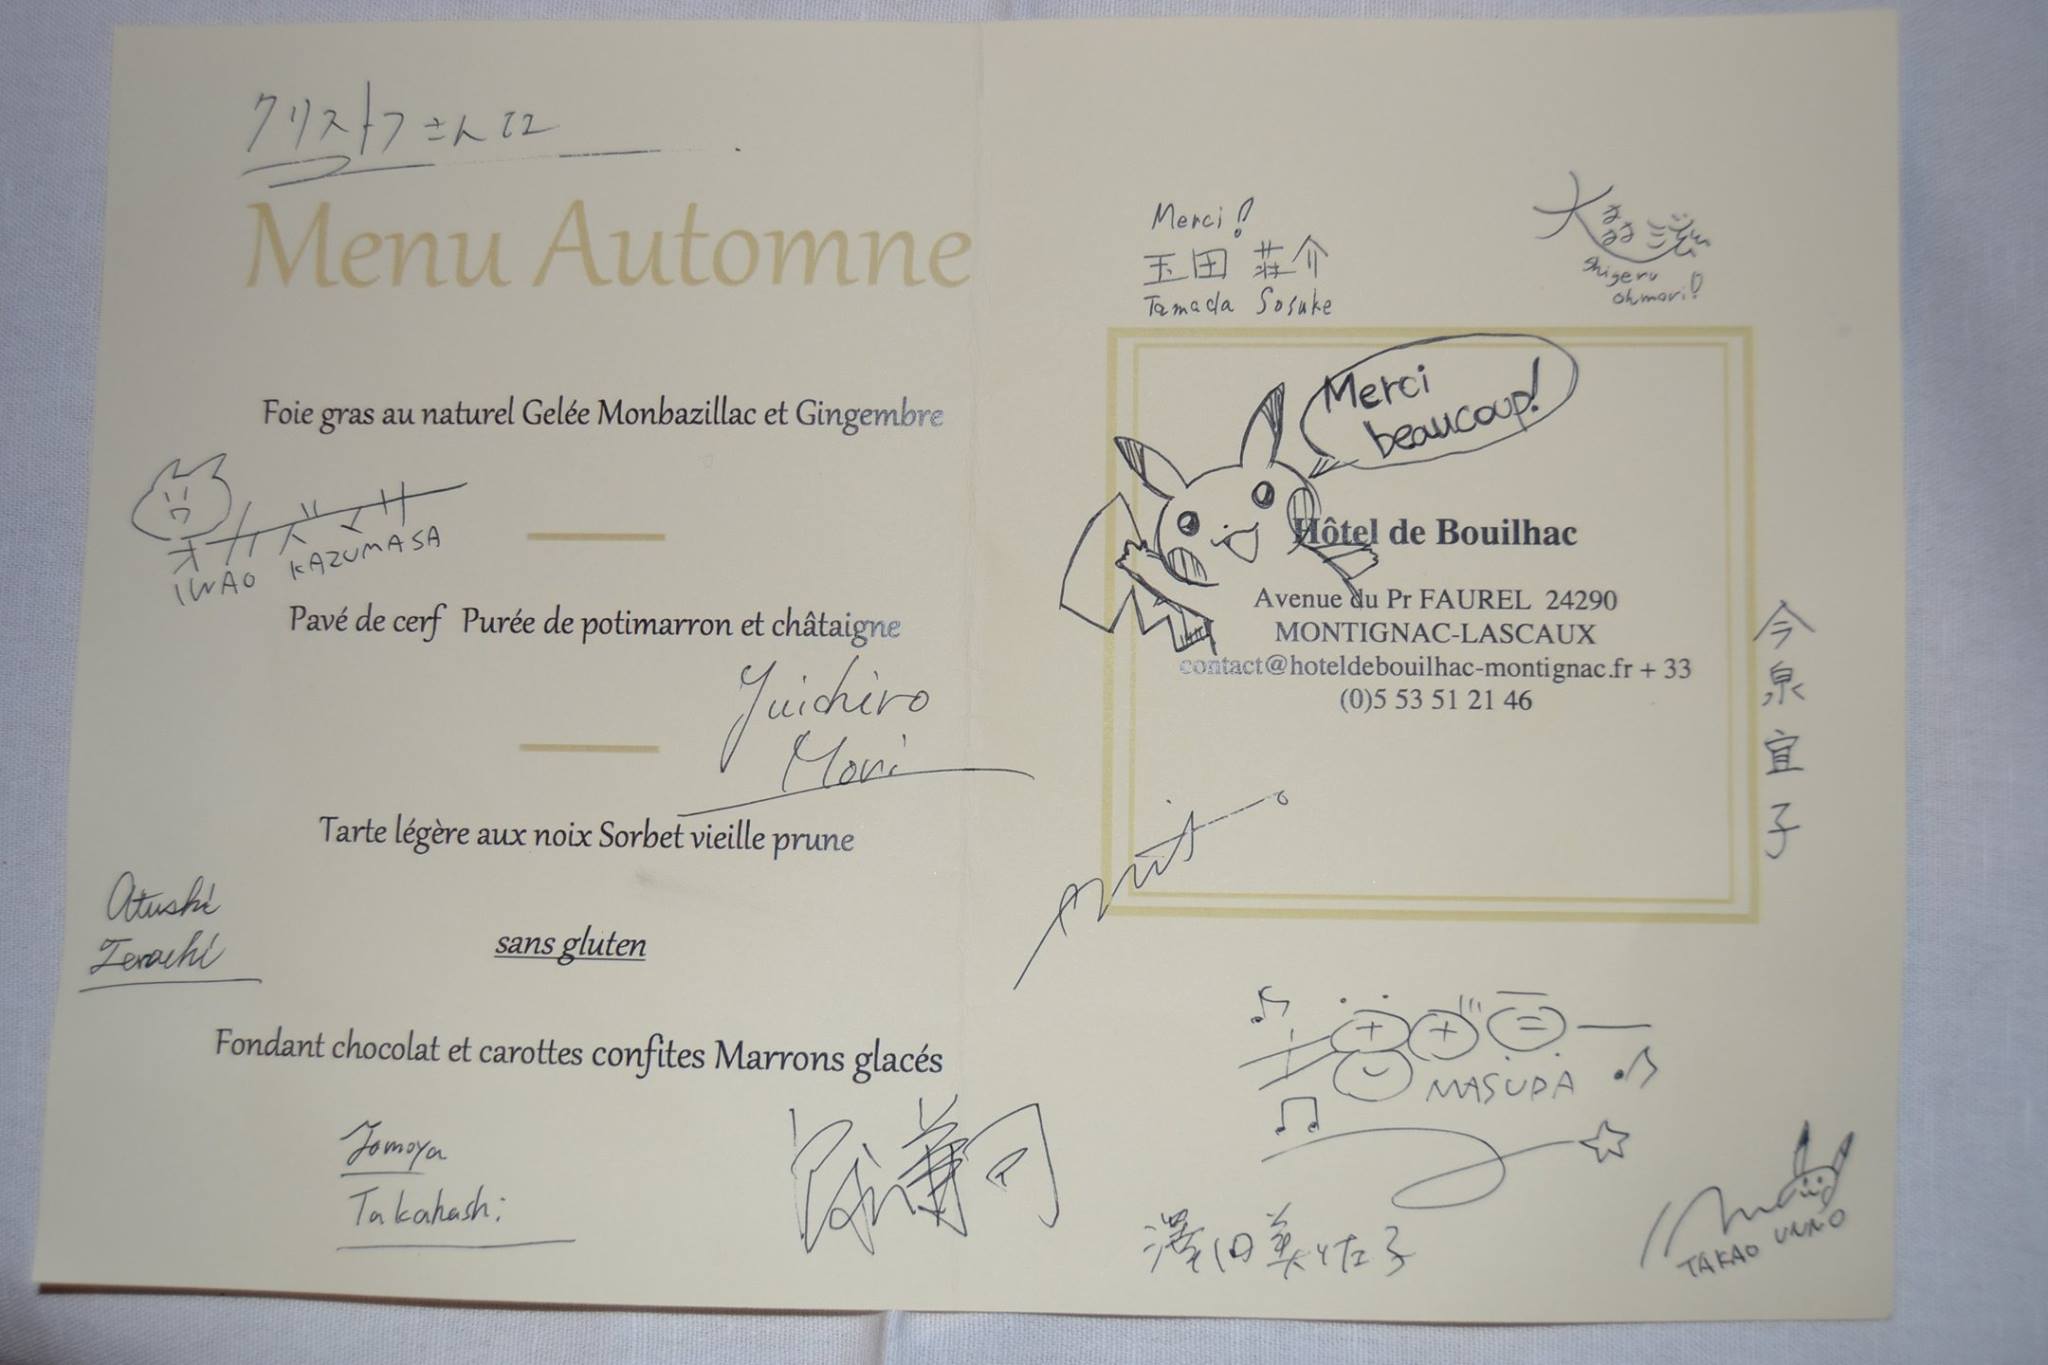 クリストフさんに
Menu Automne
Foie gras au naturel Gelée Monbazillac et Gingembre
IWAO KAZUMASA
Pavé de cerf Purée de potimarron et châtaigne
Yuichiro
Mori
Tarte légère aux noix Sorbet vieille prune
Atushi
Terachi
sans gluten
Fondant chocolat et carottes confites Marrons glacés
Tomoya
Takahashi
Merci!
玉田 荘介
Tamada Sosuke
大森 滋
Shigeru
ohmori!
Merci
beaucoup!
Hôtel de Bouilhac
Avenue du Pr FAUREL 24290
MONTIGNAC-LASCAUX
contact@hoteldebouilhac-montignac.fr + 33
(0)5 53 51 21 46
今泉宜子
MASUDA
澤田美佐子
TAKAO UNNO